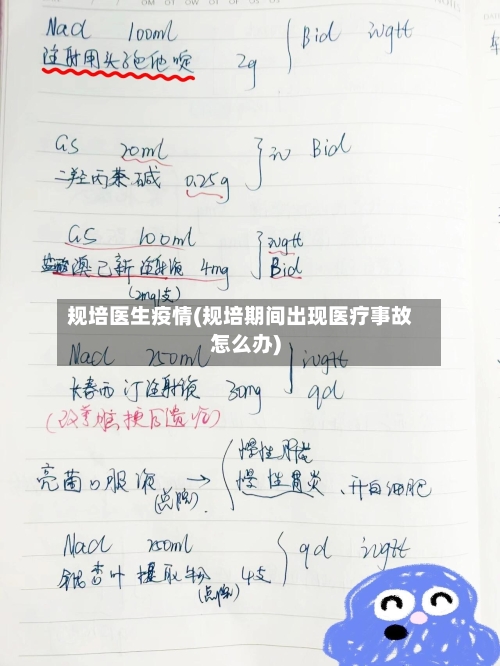 Nacl 100ml } Bid ivgtt
注射用头孢他啶 2g
GS 20ml } iv Bid
二羟丙茶碱 0.25g
GS 100ml } ivgtt
盐酸溴己新注射液 4mg Bid
(2mg/支)
规培医生疫情(规培期间出现医疗事故
怎么办)
Nacl 250ml } ivgtt
长春西汀注射液 30mg qd
(改善脑梗后遗症)
亮菌口服液 → { 慢性肝炎
(点腕). 慢性胃炎、升白细胞
Nacl 250ml } qd ivgtt
银杏叶提取物 4支